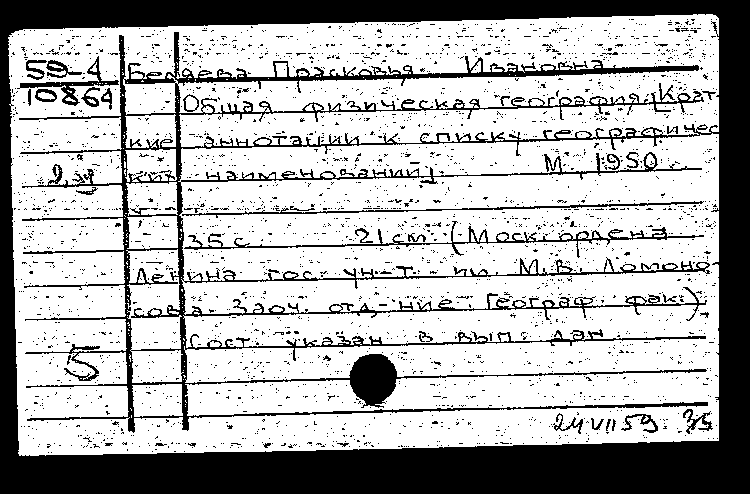 59-4 Беляева, Прасковья Ивановна.
10864 Общая физическая география. [Крат-
кие аннотации к списку географичес-
ких наименований]. М., 1950.
35 с. 21 см. (Моск. ордена
Ленина гос. ун-т им. М.В. Ломоно-
сова. Заоч. отд-ние. Географ. фак.)
Сост. указан в вып. дан.
5
24 VII 59. 35